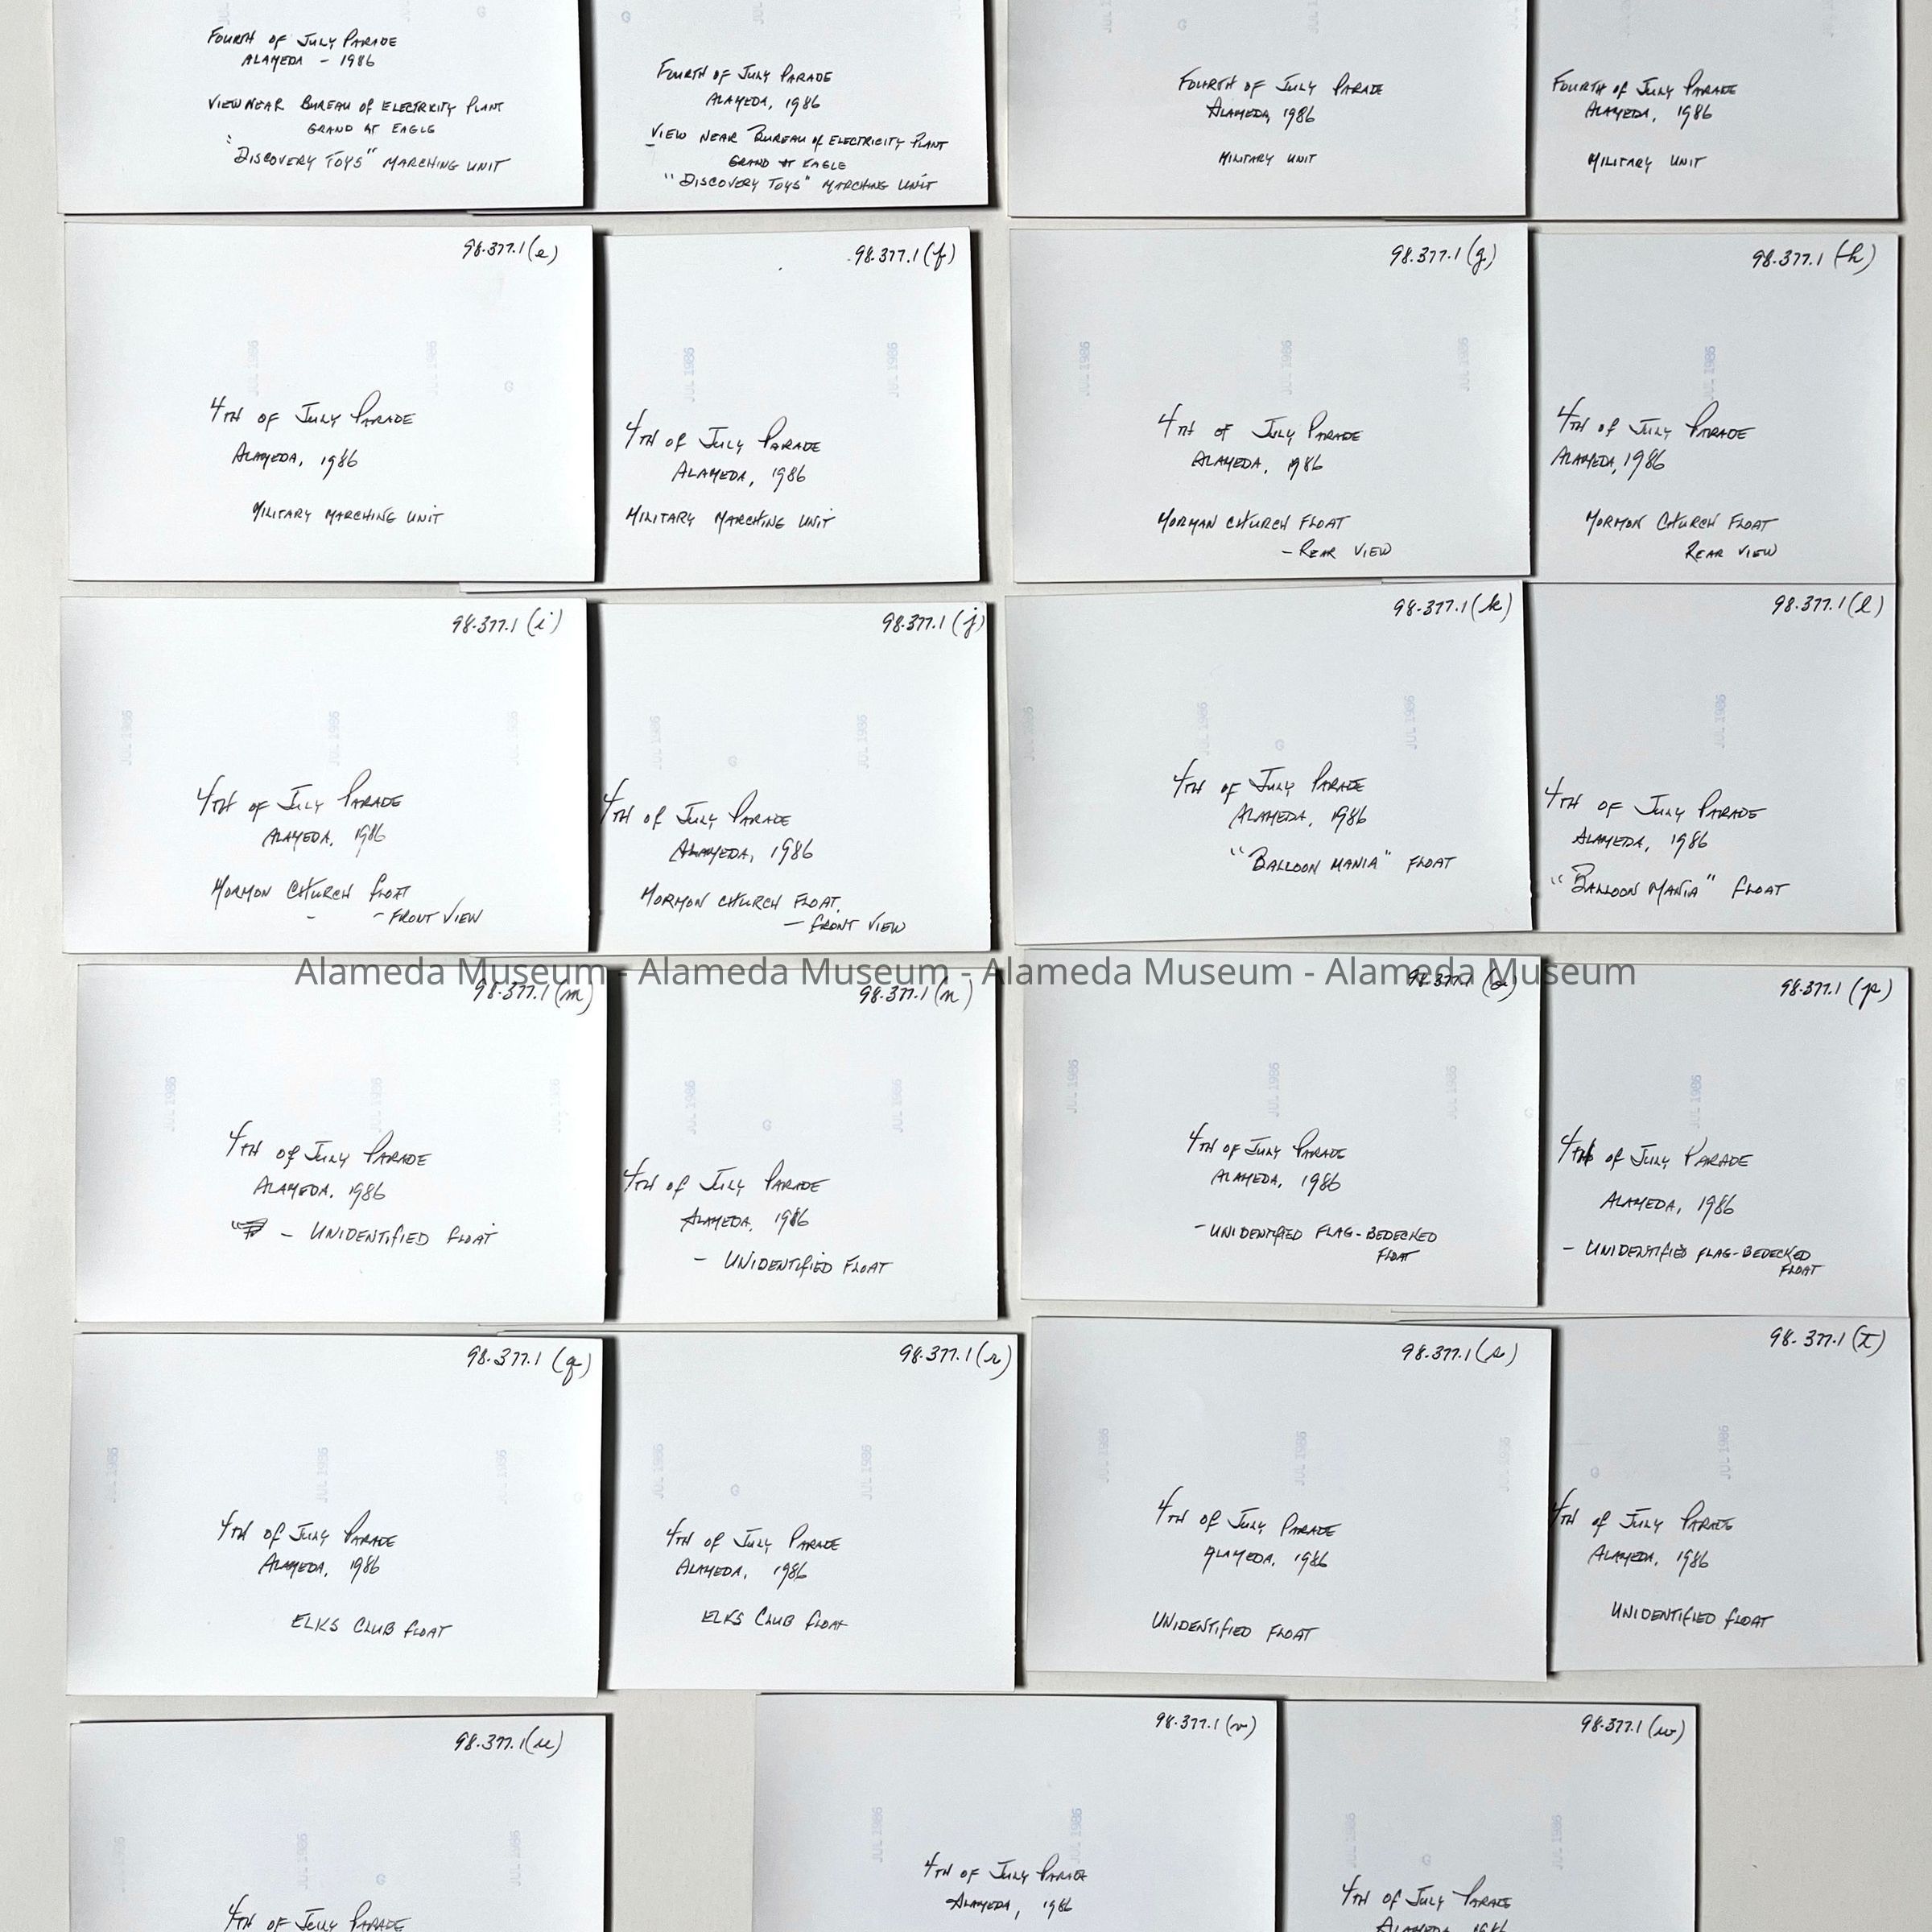 FOURTH OF JULY PARADE
ALAMEDA - 1986
VIEW NEAR BUREAU OF ELECTRICITY PLANT
GRAND AT EAGLE
"DISCOVERY TOYS" MARCHING UNIT
FOURTH OF JULY PARADE
ALAMEDA, 1986
VIEW NEAR BUREAU OF ELECTRICITY PLANT
GRAND AT EAGLE
"DISCOVERY TOYS" MARCHING UNIT
FOURTH OF JULY PARADE
ALAMEDA, 1986
MILITARY UNIT
FOURTH OF JULY PARADE
ALAMEDA, 1986
MILITARY UNIT
98.377.1 (e)
JUL 1986 JUL 1986
4TH OF JULY PARADE
ALAMEDA, 1986
MILITARY MARCHING UNIT
98.377.1 (f)
JUL 1986 JUL 1986
4TH OF JULY PARADE
ALAMEDA, 1986
MILITARY MARCHING UNIT
98.377.1 (g)
JUL 1986 JUL 1986 JUL 1986
4TH OF JULY PARADE
ALAMEDA, 1986
MORMAN CHURCH FLOAT
- REAR VIEW
98.377.1 (h)
JUL 1986
4TH OF JULY PARADE
ALAMEDA, 1986
MORMON CHURCH FLOAT
REAR VIEW
98.377.1 (i)
JUL 1986 JUL 1986 JUL 1986
4TH OF JULY PARADE
ALAMEDA, 1986
MORMON CHURCH FLOAT
- FRONT VIEW
98.377.1 (j)
JUL 1986 JUL 1986
4TH OF JULY PARADE
ALAMEDA, 1986
MORMON CHURCH FLOAT
- FRONT VIEW
98.377.1 (k)
JUL 1986 JUL 1986 JUL 1986
4TH OF JULY PARADE
ALAMEDA, 1986
"BALLOON MANIA" FLOAT
98.377.1 (l)
JUL 1986
4TH OF JULY PARADE
ALAMEDA, 1986
"BALLOON MANIA" FLOAT
Alameda Museum - Alameda Museum - Alameda Museum - Alameda Museum
98.377.1 (m)
JUL 1986 JUL 1986 JUL 1986
4TH OF JULY PARADE
ALAMEDA, 1986
- UNIDENTIFIED FLOAT
98.377.1 (n)
JUL 1986 JUL 1986
4TH OF JULY PARADE
ALAMEDA, 1986
- UNIDENTIFIED FLOAT
98.377.1 (o)
JUL 1986 JUL 1986 JUL 1986
4TH OF JULY PARADE
ALAMEDA, 1986
- UNIDENTIFIED FLAG-BEDECKED
FLOAT
98.377.1 (p)
JUL 1986
4TH OF JULY PARADE
ALAMEDA, 1986
- UNIDENTIFIED FLAG-BEDECKED
FLOAT
98.377.1 (q)
JUL 1986 JUL 1986 JUL 1986
4TH OF JULY PARADE
ALAMEDA, 1986
ELKS CLUB FLOAT
98.377.1 (r)
JUL 1986 JUL 1986
4TH OF JULY PARADE
ALAMEDA, 1986
ELKS CLUB FLOAT
98.377.1 (s)
JUL 1986 JUL 1986 JUL 1986
4TH OF JULY PARADE
ALAMEDA, 1986
UNIDENTIFIED FLOAT
98.377.1 (t)
JUL 1986
4TH OF JULY PARADE
ALAMEDA, 1986
UNIDENTIFIED FLOAT
98.377.1 (u)
JUL 1986 JUL 1986 JUL 1986
4TH OF JULY PARADE
98.377.1 (v)
JUL 1986 JUL 1986
4TH OF JULY PARADE
ALAMEDA, 1986
98.377.1 (w)
JUL 1986 JUL 1986
4TH OF JULY PARADE
ALAMEDA, 1986